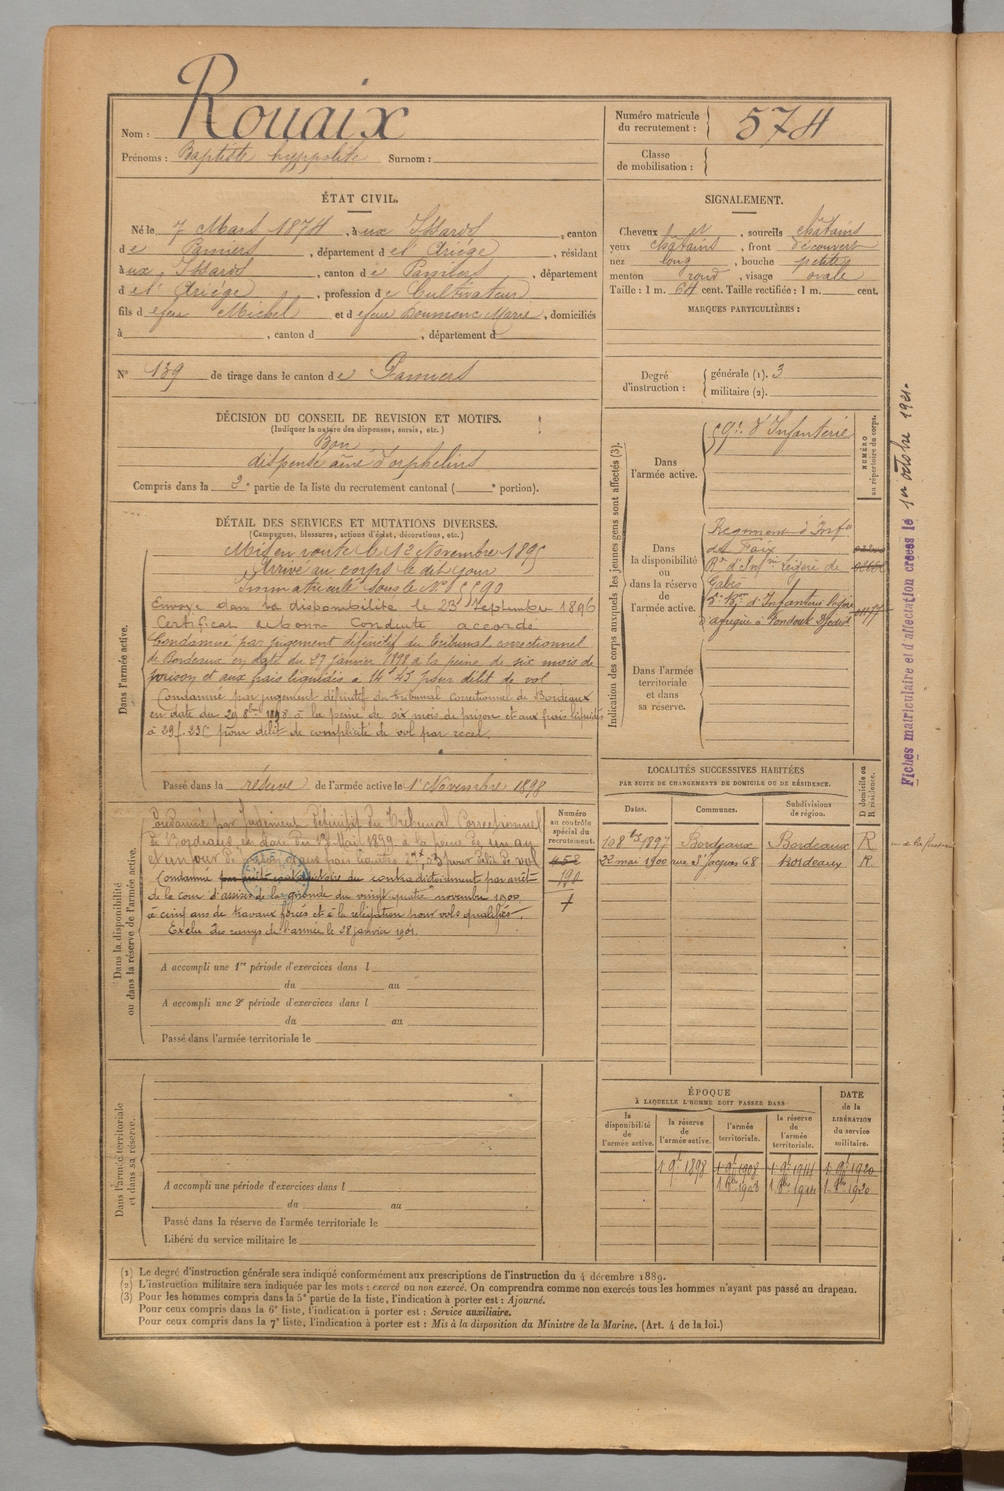 Nom : Rouaix
Prénoms : Baptiste hyppolite Surnom :
Numéro matricule du recrutement : 574
Classe de mobilisation :
ÉTAT CIVIL.
Né le 7 Mars 1874, à ux Issards, canton
d e Pamiers, département d e l'Ariège, résidant
à ux Issards, canton d e Pamiers, département
d e l'Ariège, profession d e Cultivateur
fils d e feu Michel et d e feue Boumenc Marie, domiciliés
à , canton d , département d
N° 139 de tirage dans le canton d e Pamiers
SIGNALEMENT.
Cheveux , sourcils châtains
yeux châtains, front découvert
nez long, bouche petite
menton rond, visage ovale
Taille : 1 m. 64 cent. Taille rectifiée : 1 m. cent.
MARQUES PARTICULIÈRES :
Degré d'instruction : générale (1). 3
militaire (2).
DÉCISION DU CONSEIL DE REVISION ET MOTIFS.
(Indiquer la nature des dispenses, sursis, etc.)
Bon
dispensé aîné d'orphelins
Compris dans la 2e partie de la liste du recrutement cantonal ( e portion).
DÉTAIL DES SERVICES ET MUTATIONS DIVERSES.
(Campagnes, blessures, actions d'éclat, décorations, etc.)
Dans l'armée active.
Mis en route le 12 Novembre 1895
Arrivé au corps le dit jour
Immatriculé sous le N°
Envoyé dans la disponibilité le 23 Septembre 1896
Certificat de bonne Conduite accordé
Condamné par jugement définitif du tribunal correctionnel
de Bordeaux en date du 27 janvier 1898 à la peine de six mois de
prison et aux frais liquidés à pour délit de vol.
Condamné par jugement définitif du tribunal correctionnel de Bordeaux
en date du 29 8bre 1898 à la peine de six mois de prison et aux frais liquidés
à 29f.23c pour délit de complicité de vol par recel.
Passé dans la réserve de l'armée active le 1er Novembre 1898
Dans la disponibilité ou dans la réserve de l'armée active.
Condamné par Jugement Définitif du Tribunal Correctionnel
de Bordeaux en date du Mai 1899 à la peine de un an
et un jour de prison et aux frais liquidés pour délit de vol
Condamné contradictoirement par arrêt
de la cour d'assises de la gironde du vingt quatre novembre 1900
à cinq ans de travaux forcés et à la relégation pour vols qualifiés.
Exclu des rangs de l'armée le 28 janvier 1901.
A accompli une 1re période d'exercices dans l
du au
A accompli une 2e période d'exercices dans l
du au
Passé dans l'armée territoriale le
Numéro au contrôle spécial du recrutement.
190
Dans l'armée territoriale et dans sa réserve.
A accompli une période d'exercices dans l
du au
Passé dans la réserve de l'armée territoriale le
Libéré du service militaire le
Indication des corps auxquels les jeunes gens sont affectés (3).
NUMÉRO au répertoire du corps.
Dans l'armée active.
59e d'Infanterie
Dans la disponibilité ou dans la réserve de l'armée active.
Régiment d'Infie
de Foix
Bon d'Infie légère de
Gabès
5e Bon d'Infanterie légère
d'afrique à
Dans l'armée territoriale et dans sa réserve.
Fiches matriculaire et d'affectation créées le 1er octobre 1921.
LOCALITÉS SUCCESSIVES HABITÉES
PAR SUITE DE CHANGEMENTS DE DOMICILE OU DE RÉSIDENCE.
Dates. Communes. Subdivisions de région. D domicile ou R résidence.
10 8bre 1897 Bordeaux Bordeaux R
22 mai 1900 rue St Jacques 68 Bordeaux R
ÉPOQUE
À LAQUELLE L'HOMME DOIT PASSER DANS
la disponibilité de l'armée active. la réserve de l'armée active. l'armée territoriale. la réserve de l'armée territoriale. DATE de la LIBÉRATION du service militaire.
1 9b 1898 1 9b 1908 1 9b 1914 1 9b 1920
1 8bre 1908 1 8bre 1914 1 8bre 1920
(1) Le degré d'instruction générale sera indiqué conformément aux prescriptions de l'instruction du 4 décembre 1889.
(2) L'instruction militaire sera indiquée par les mots : exercé ou non exercé. On comprendra comme non exercés tous les hommes n'ayant pas passé au drapeau.
(3) Pour les hommes compris dans la 5e partie de la liste, l'indication à porter est : Ajourné.
Pour ceux compris dans la 6e liste, l'indication à porter est : Service auxiliaire.
Pour ceux compris dans la 7e liste, l'indication à porter est : Mis à la disposition du Ministre de la Marine. (Art. 4 de la loi.)